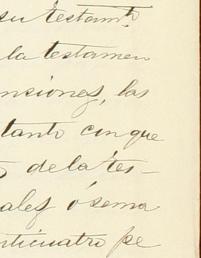 su testamto
la testamen
nsiones, las
tanto cinque
de la tes-
ales ó sema
nticuatro pe